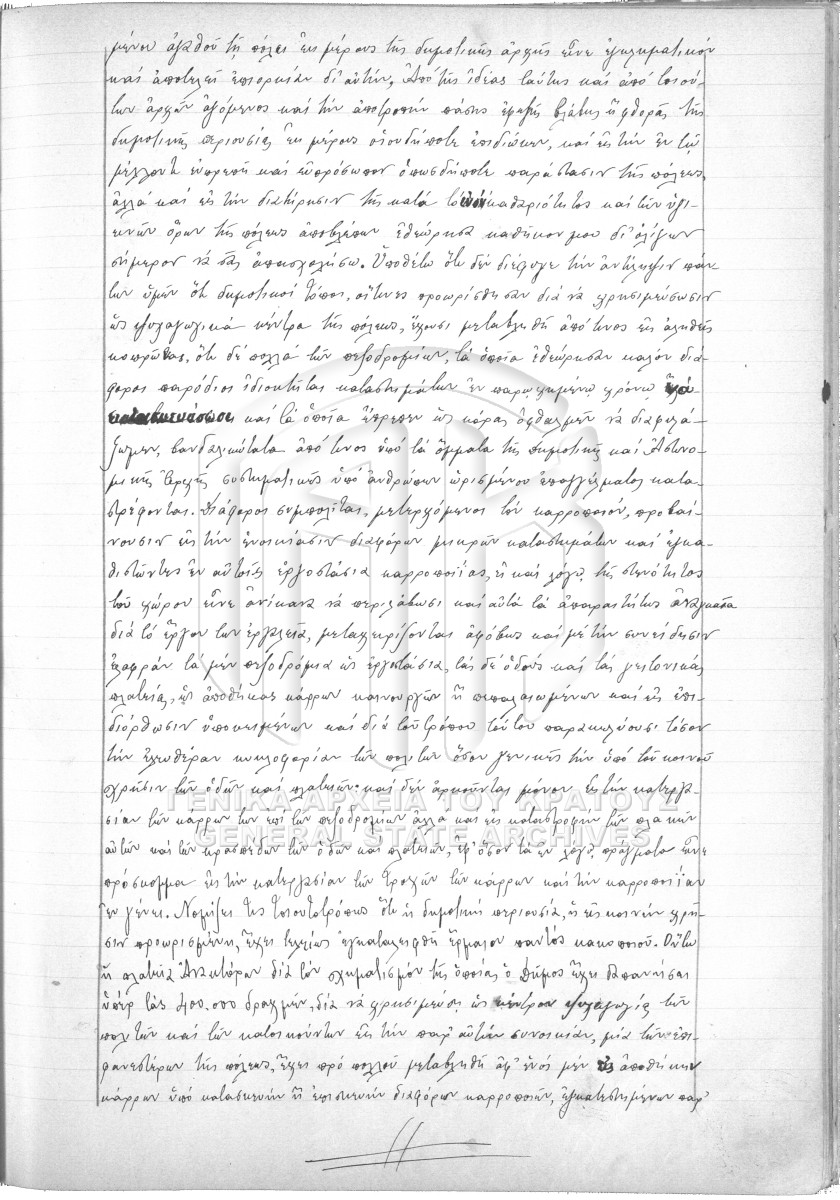 μένου ἀγαθοῦ τῇ πόλει ἐκ μέρους τῆς δημοτικῆς ἀρχῆς εἶνε ἐγκληματικόν
καί ἀποτελεῖ ἐπιορκίαν δι' αὐτήν. Ἀπό τῆς ἰδέας ταύτης καί ἀπό τοιού-
των ἀρχῶν ἀγόμενος καί τήν ἀποτροπήν πάσης βλάβης ἤ φθορᾶς τῆς
δημοτικῆς περιουσίας ἐκ μέρους οἱουδήποτε ἐπιδιώκων, καί εἰς τήν ἐν τῷ
μέλλοντι εὐπρεπῆ καί εὐπρόσωπον ὁπωσδήποτε παράστασιν τῆς πόλεως,
ἀλλά καί εἰς τήν διατήρησιν τῆς κατά καθαριότητος καί τῶν ὑγι-
εινῶν ὅρων τῆς πόλεως ἀποβλέπων ἐθεώρησα καθῆκον μου δι' ὀλίγων
σήμερον νά σᾶς ἀπασχολήσω. Ὑποθέτω ὅτι δέν διέφυγε τήν ἀντίληψιν πάν-
των ὑμῶν ὅτι δημοτικοί τόποι, οἵτινες προωρίσθησαν διά νά χρησιμεύσωσιν
ὡς ψυχαγωγικά κέντρα τῆς πόλεως, ἔχουσι μεταβληθῆ ἀπό τινος εἰς ἀληθεῖς
κοπρῶνας, ὅτι δέ πολλά τῶν πεζοδρομίων, τά ὁποῖα ἐθεώρησαν καλόν διά-
φοροι παρόδιοι ἰδιοκτῆται καταστημάτων ἐν παρῳχημένῳ χρόνῳ νά
κατασκευάσωσι καί τά ὁποῖα ἔπρεπεν ὡς κόρας ὀφθαλμῶν νά διαφυλά-
ξωμεν, βανδαλικώτατα ἀπό τινος ὑπό τά ὄμματα τῆς Δημοτικῆς καί Ἀστυνο-
μικῆς Ἀρχῆς συστηματικῶς ὑπό ἀνθρώπων ὡρισμένου ἐπαγγέλματος κατα-
στρέφονται. Διάφοροι συμπολῖται, μετερχόμενοι τόν καρροποιόν, προβαί-
νουσιν εἰς τήν ἐνοικίασιν διαφόρων μικρῶν καταστημάτων καί ἐγκα-
θιστῶντες ἐν αὐτοῖς ἐργοστάσια καρροποιΐας, ἅ καί λόγῳ τῆς στενότητος
τοῦ χώρου εἶνε ἀνίκανα νά περιλάβωσι καί αὐτά τά ἀπαραιτήτως ἀναγκαῖα
διά τό ἔργον των ἐργαλεῖα, μεταχειρίζονται ἀφόβως καί μέ τήν συνείδησιν
ἐλαφράν τά μέν πεζοδρόμια ὡς ἐργοστάσια, τάς δέ ὁδούς καί τάς γειτονικάς
πλατείας, ὡς ἀποθήκας κάρρων καινουργῶν ἤ πεπαλαιωμένων καί εἰς ἐπι-
διόρθωσιν ὑποκειμένων καί διά τοῦ τρόπου τούτου παρακωλύουσι τόσον
τήν ἐλευθέραν κυκλοφορίαν τῶν πολιτῶν ὅσον γενικῶς τήν ὑπό τοῦ κοινοῦ
χρῆσιν τῶν ὁδῶν καί πλατειῶν· καί δέν ἀρκοῦνται μόνον εἰς τήν κατεργα-
σίαν τῶν κάρρων των ἐπί τῶν πεζοδρομίων ἀλλά καί εἰς καταστροφήν τῶν πλακῶν
αὐτῶν καί τῶν κρασπέδων τῶν ὁδῶν καί πλατειῶν, ἐφ' ὅσον τά ἐν λόγῳ πράγματα εἶνε
πρόσκομμα εἰς τήν κατεργασίαν τῶν τροχῶν τῶν κάρρων καί τήν καρροποιΐαν
ἐν γένει. Νομίζει τις τοιουτοτρόπως ὅτι ἡ δημοτική περιουσία, ἡ εἰς κοινήν χρῆ-
σιν προωρισμένη, ἔχει τελείως ἐγκαταλειφθῆ ἕρμαιον παντός κακοποιοῦ. Οὕτω
ἡ πλατεῖα Ἀνακτόρων διά τόν σχηματισμόν τῆς ὁποίας ὁ Δῆμος ἔχει δαπανήσει
ὑπέρ τάς 400.000 δραχμῶν, διά νά χρησιμεύσῃ ὡς κέντρον ψυχαγωγίας τῶν
πολιτῶν καί τῶν κατοικούντων εἰς τήν παρ' αὐτήν συνοικίαν, μία τῶν ἐπι-
φανεστέρων τῆς πόλεως, ἔχει πρό πολλοῦ μεταβληθῆ ἀφ' ἑνός μέν εἰς ἀποθήκην
κάρρων ὑπό κατασκευήν ἤ ἐπισκευήν διαφόρων καρροποιῶν, ἐγκατεστημένων παρ'
ΓΕΝΙΚΑ ΑΡΧΕΙΑ ΤΟΥ ΚΡΑΤΟΥΣ
GENERAL STATE ARCHIVES